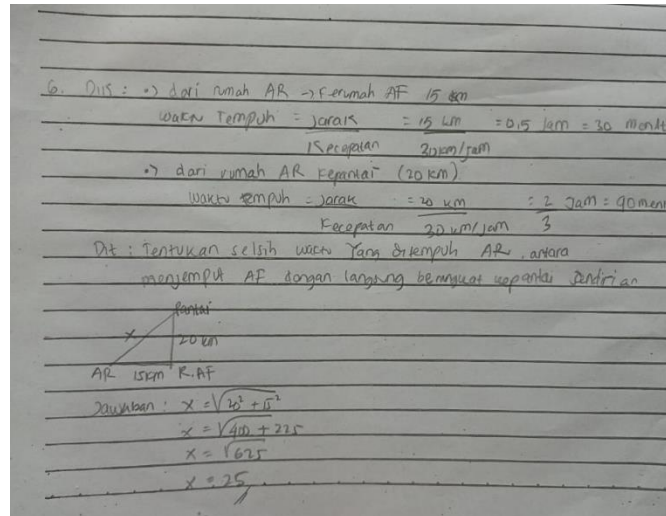 6. Dit : •) dari rumah AR → kerumah AF 15 km
Waktu Tempuh = Jarak = 15 km = 0,5 Jam = 30 menit
Kecepatan 30km/jam
•) dari rumah AR kepantai (20 km)
Waktu tempuh = Jarak = 20 km = 2 Jam = 90 meni
Kecepatan 30 km/jam 3
Dit : Tentukan selsih waktu Yang ditempuh AR, antara
menjemput AF dengan langsung berangkat kepantai Sendirian
Pantai
x 20 km
AR 15km R.AF
Jawaban : x = √20² + 15²
x = √400 + 225
x = √625
x = 25